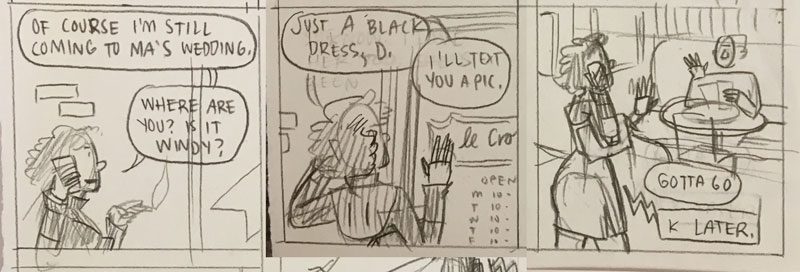 OF COURSE I'M STILL
COMING TO MA'S WEDDING.
WHERE ARE
YOU? IS IT
WINDY?
JUST A BLACK
DRESS, D.
I'LL TEXT
YOU A PIC.
le Cro
OPEN
M 10-
T 10-
W 10-
T 10-
F 10-
GOTTA GO
K LATER.